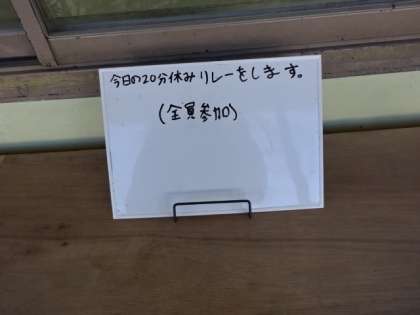 今日の20分休みリレーをします。
(全員参加)